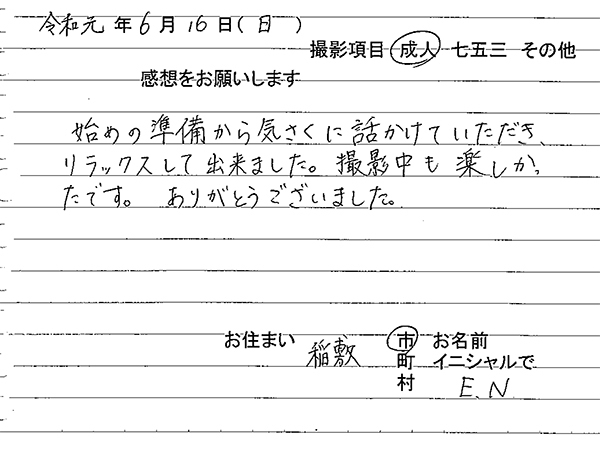 令和元年6月16日(日)
撮影項目 成人 七五三 その他
感想をお願いします
始めの準備から気さくに話かけていただき、
リラックスして出来ました。撮影中も楽しかっ
たです。 ありがとうございました。
お住まい 稲敷 市 お名前
町 イニシャルで
村 E.N